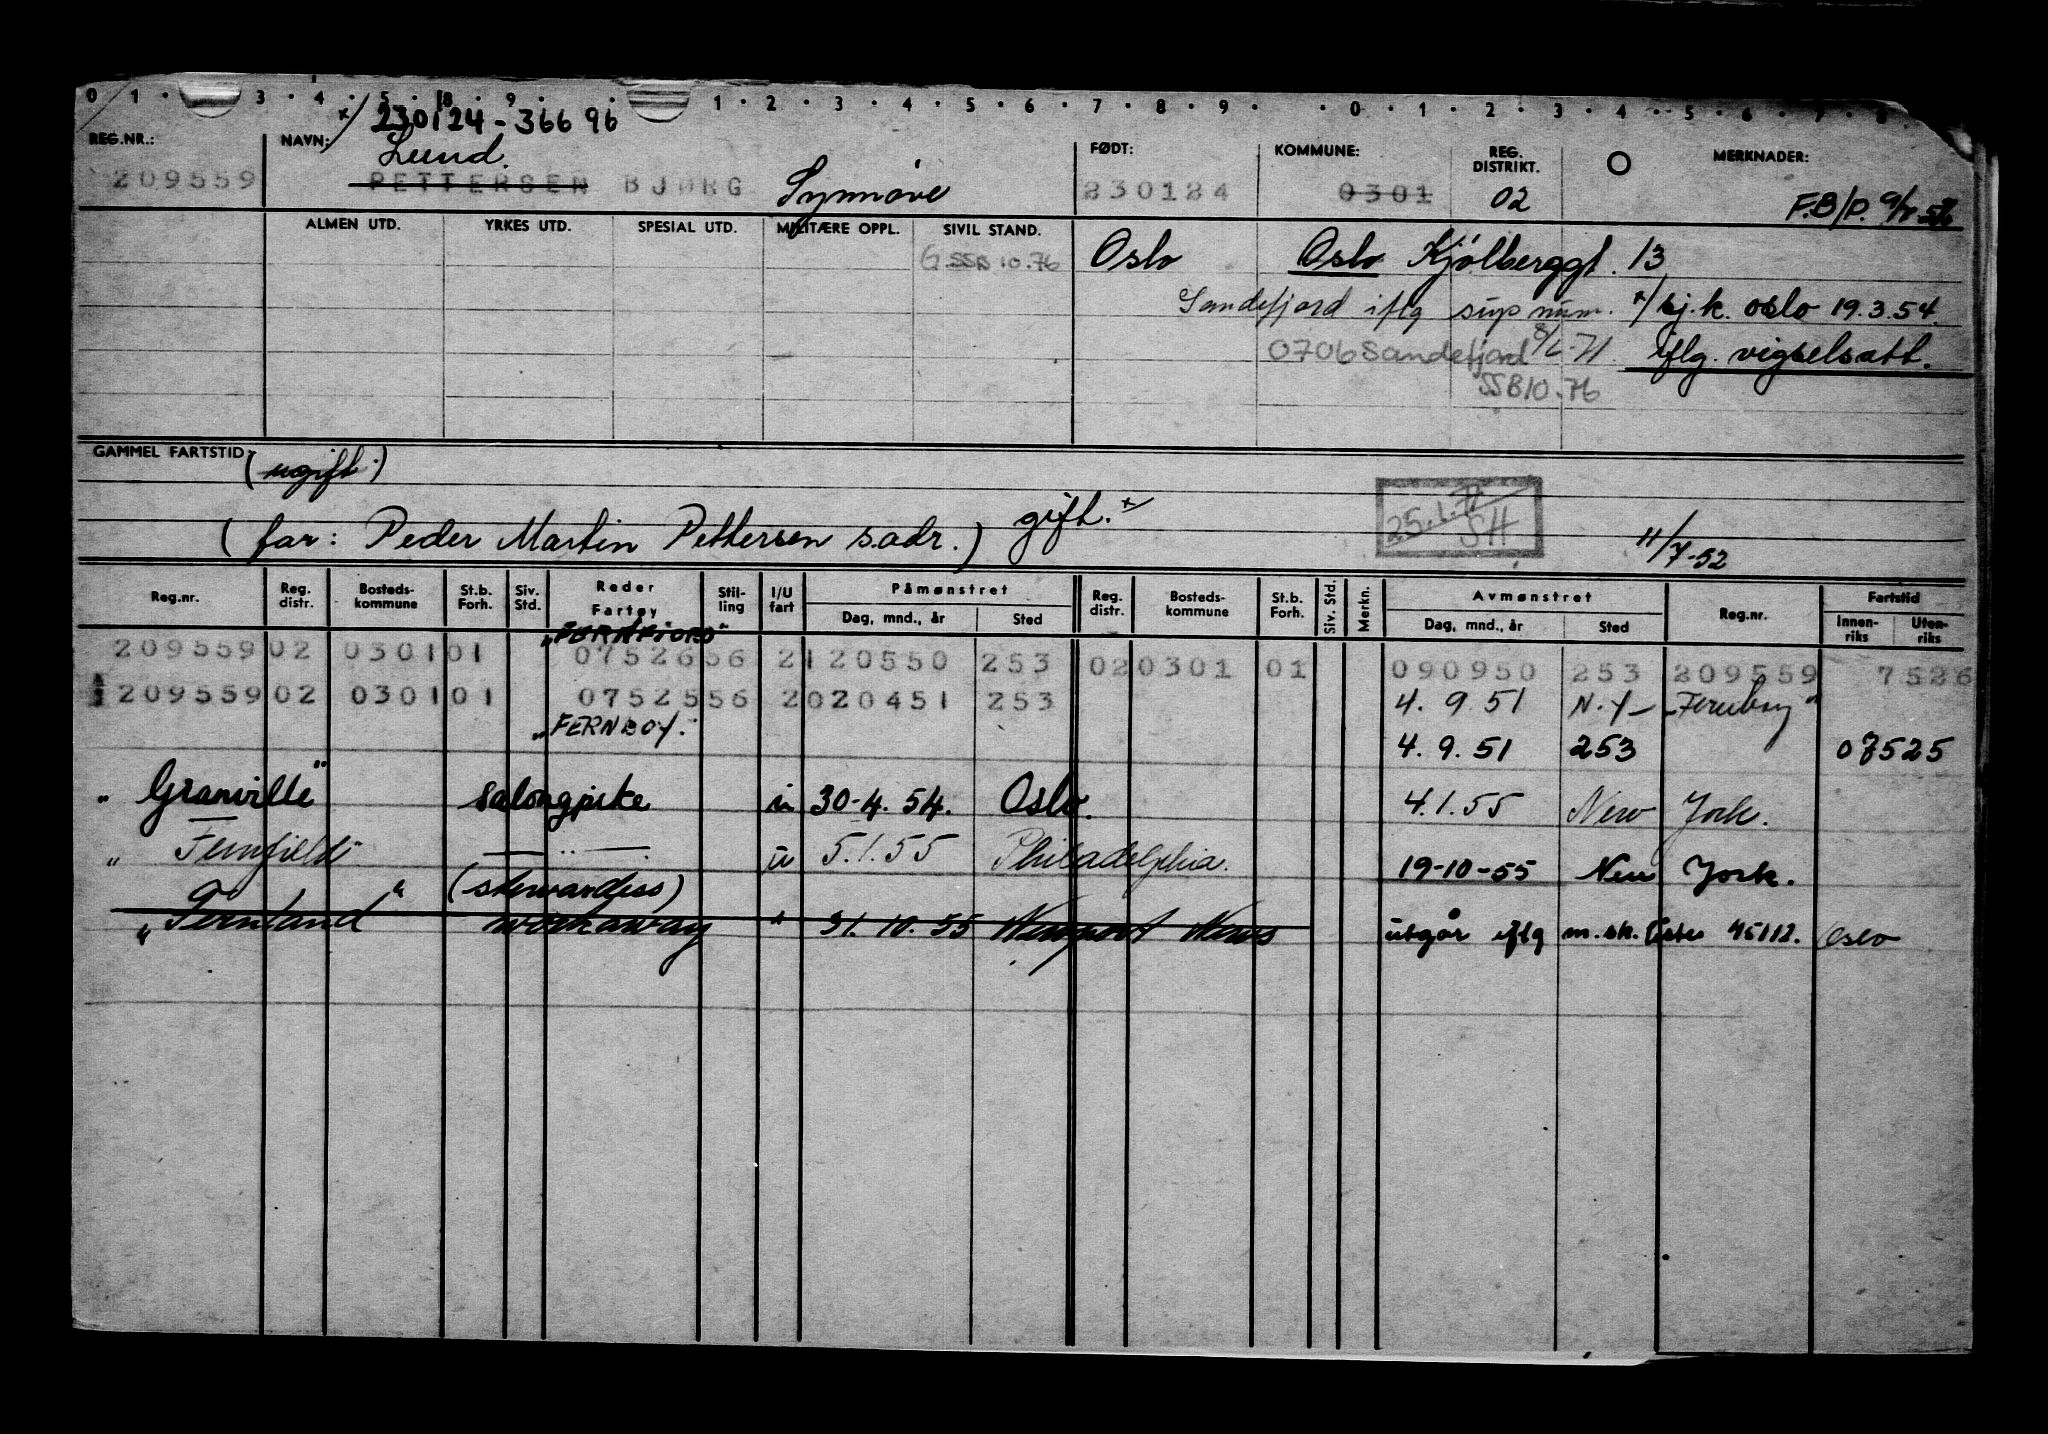 0 1 3 4 5 8 9 1 2 3 4 5 6 7 8 9 0 1 2 3 4 5 6 7 8
x/ 230124 - 36696
REG.NR.: NAVN: Lund. FØDT: KOMMUNE: REG. DISTRIKT. MERKNADER:
209559 PETTERSEN BJØRG Synnøve 230124 0301 02 F.B/P.
ALMEN UTD. YRKES UTD. SPESIAL UTD. MILITÆRE OPPL. SIVIL STAND.
G SSB 10.76 Oslo Oslo Kjølberggt. 13
Sandefjord iflg sup num. x/ sj.k. oslo 19.3.54.
0706 Sandefjord iflg. vigselsatt.
SSB 10.76
GAMMEL FARTSTID (ugift.)
(far: Peder Martin Pettersen s.adr.) gift. x
25.1.77 SH
11/7-52
Reg.nr. Reg. distr. Bosteds- kommune St.b. Forh. Siv. Std. Reder Fartøy Stil- ling I/U fart Påmønstret Dag, mnd., år Sted Reg. distr. Bosteds- kommune St.b. Forh. Siv. Std. Merkn. Avmønstret Dag, mnd., år Sted Reg.nr. Fartstid Innen- riks Uten- riks
"FERNFIORD"
209559 02 0301 01 07526 56 2 120550 253 02 0301 01 090950 253 209559 7526
209559 02 0301 01 07525 56 2 020451 253 4. 9. 51 N.Y "Fernbay"
"FERNBOY". 4. 9. 51 253 07525
" Granville " salongpike 30-4. 54. Oslo. 4.1.55 New York.
" Fernfield u 5.1.55 Philadelphia. 19-10-55 New York.
(stewardess)
" Fernland " workaway " 31. 10. 55 Newport News utgår iflg m.sk. 45112. Oslo